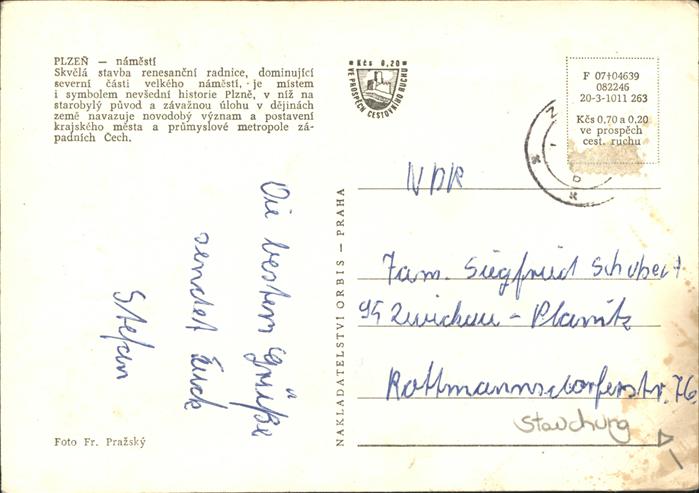 PLZEŇ — náměstí
Skvělá stavba renesanční radnice, dominující
severní části velkého náměstí, je místem
i symbolem nevšední historie Plzně, v níž na
starobylý původ a závažnou úlohu v dějinách
země navazuje novodobý význam a postavení
krajského města a průmyslové metropole zá-
padních Čech.
Kčs 0,20
VE PROSPĚCH CESTOVNÍHO RUCHU
F 07+04639
082246
20-3-1011 263
Kčs 0,70 a 0,20
ve prospěch
cest. ruchu
NDR
Fam. Siegfried Schubert
95 Zwickau - Planitz
Rottmannsdorferstr. 76
Stauchung
Die besten Grüße
sendet Euch
Stefan
NAKLADATELSTVÍ ORBIS — PRAHA
Foto Fr. Pražský